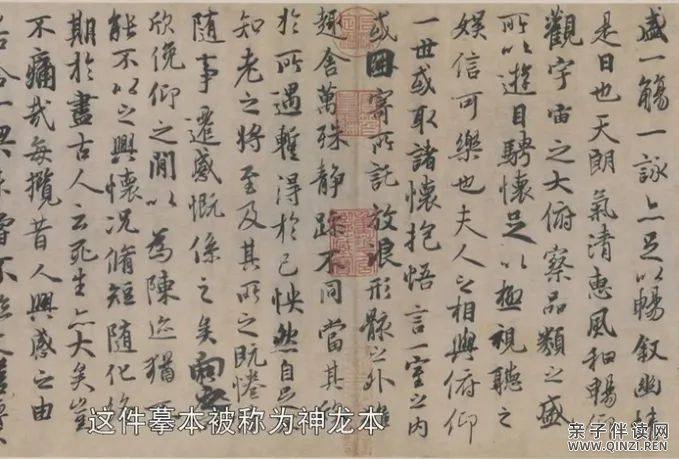 盛一觴一詠亦足以暢叙幽情
是日也天朗氣清惠風和暢仰
觀宇宙之大俯察品類之盛
所以遊目騁懷足以極視聽之
娛信可樂也夫人之相與俯仰
一世或取諸懷抱悟言一室之内
或因寄所託放浪形骸之外雖
趣舍萬殊静躁不同當其欣
於所遇暫得於己怏然自足
知老之將至及其所之既惓
隨事遷感慨係之矣向之
欣俛仰之閒以為陳迹猶不
能不以之興懷況脩短隨化終
期於盡古人云死生亦大矣豈
不痛哉每攬昔人興感之由
合一契未嘗不臨文嗟悼
这件摹本被称为神龙本
亲子伴读网
WWW.QINZI.REN